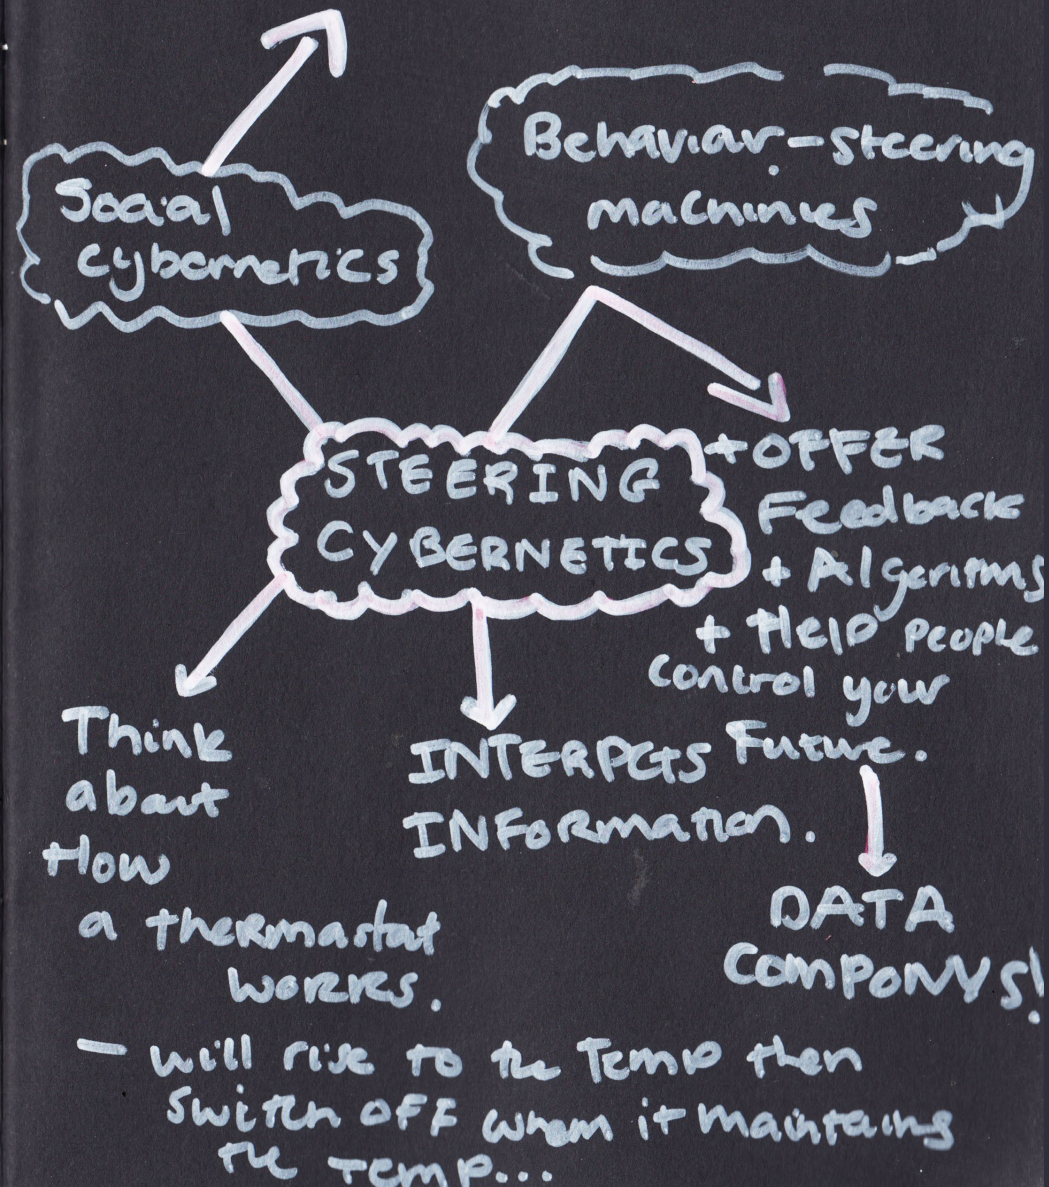 Social
cybernetics
Behaviar-steering
machines
STEERING
CYBERNETICS
+ OFFER
Feedback
+ Algeritms
+ Help people
control your
Future.
DATA
COMPONYS!
INTERPETS
INFORmation.
Think
about
How
a thermastat
works.
- will rise to the Temp then
switch OFF when it maintains
the temp...